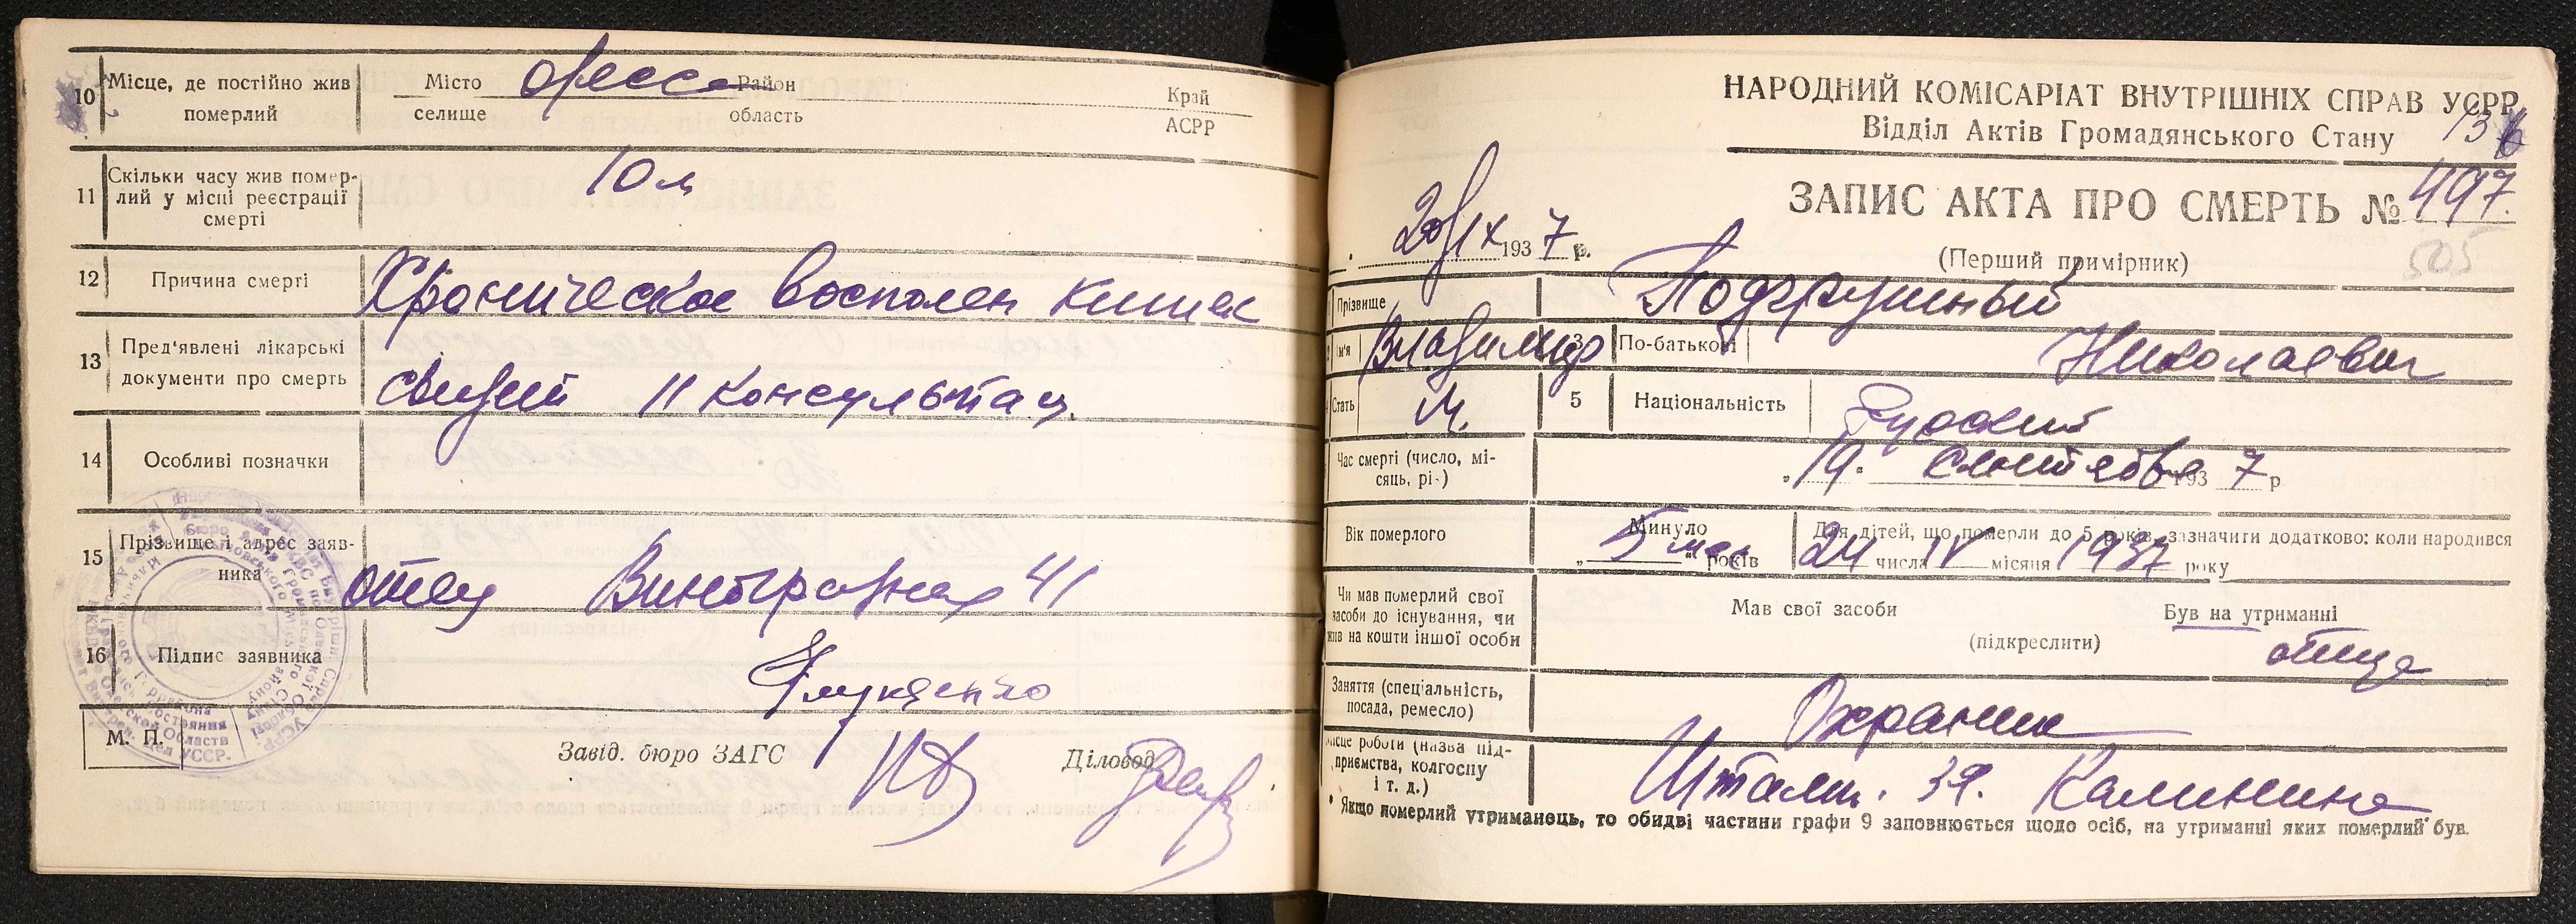 10 Місце, де постійно жив померлий
Місто Одесса Район Край
селище область АСРР
11 Скільки часу жив помер-
лий у місці реєстрації
смерті
10 м
12 Причина смерті Хроническое воспален кишек
13 Пред'явлені лікарські
документи про смерть
11 консультац.
14 Особливі позначки
15 Прізвище і адрес заяв-
ника
отец Виноградная 41
16 Підпис заявника
М. П.
Завід. бюро ЗАГС Діловод
НАРОДНИЙ КОМІСАРІАТ ВНУТРІШНІХ СПРАВ УСРР
Відділ Актів Громадянського Стану
136
ЗАПИС АКТА ПРО СМЕРТЬ № 497.
20/IX 1937 р.
(Перший примірник)
505
Прізвище Подгрушный
Ім'я Владимир 3 По-батькові Николаевич
Стать м. 5 Національність Русский
Час смерті (число, мі-
сяць, рік)
„19. Сентября 1937 р
Вік померлого
Минуло
5 мес років
Для дітей, що померли до 5 років, зазначити додатково: коли народився
24 числа IV місяця 1937 року
Чи мав померлий свої
засоби до існування, чи
жив на кошти іншої особи
Мав свої засоби Був на утриманні
(підкреслити)
отца
Заняття (спеціальність,
посада, ремесло)
Охраник
Місце роботи (назва під-
приємства, колгоспу
і т. д.)
Калинина
* Якщо померлий утриманець, то обидві частини графи 9 заповнюється щодо осіб, на утриманні яких померлий був.